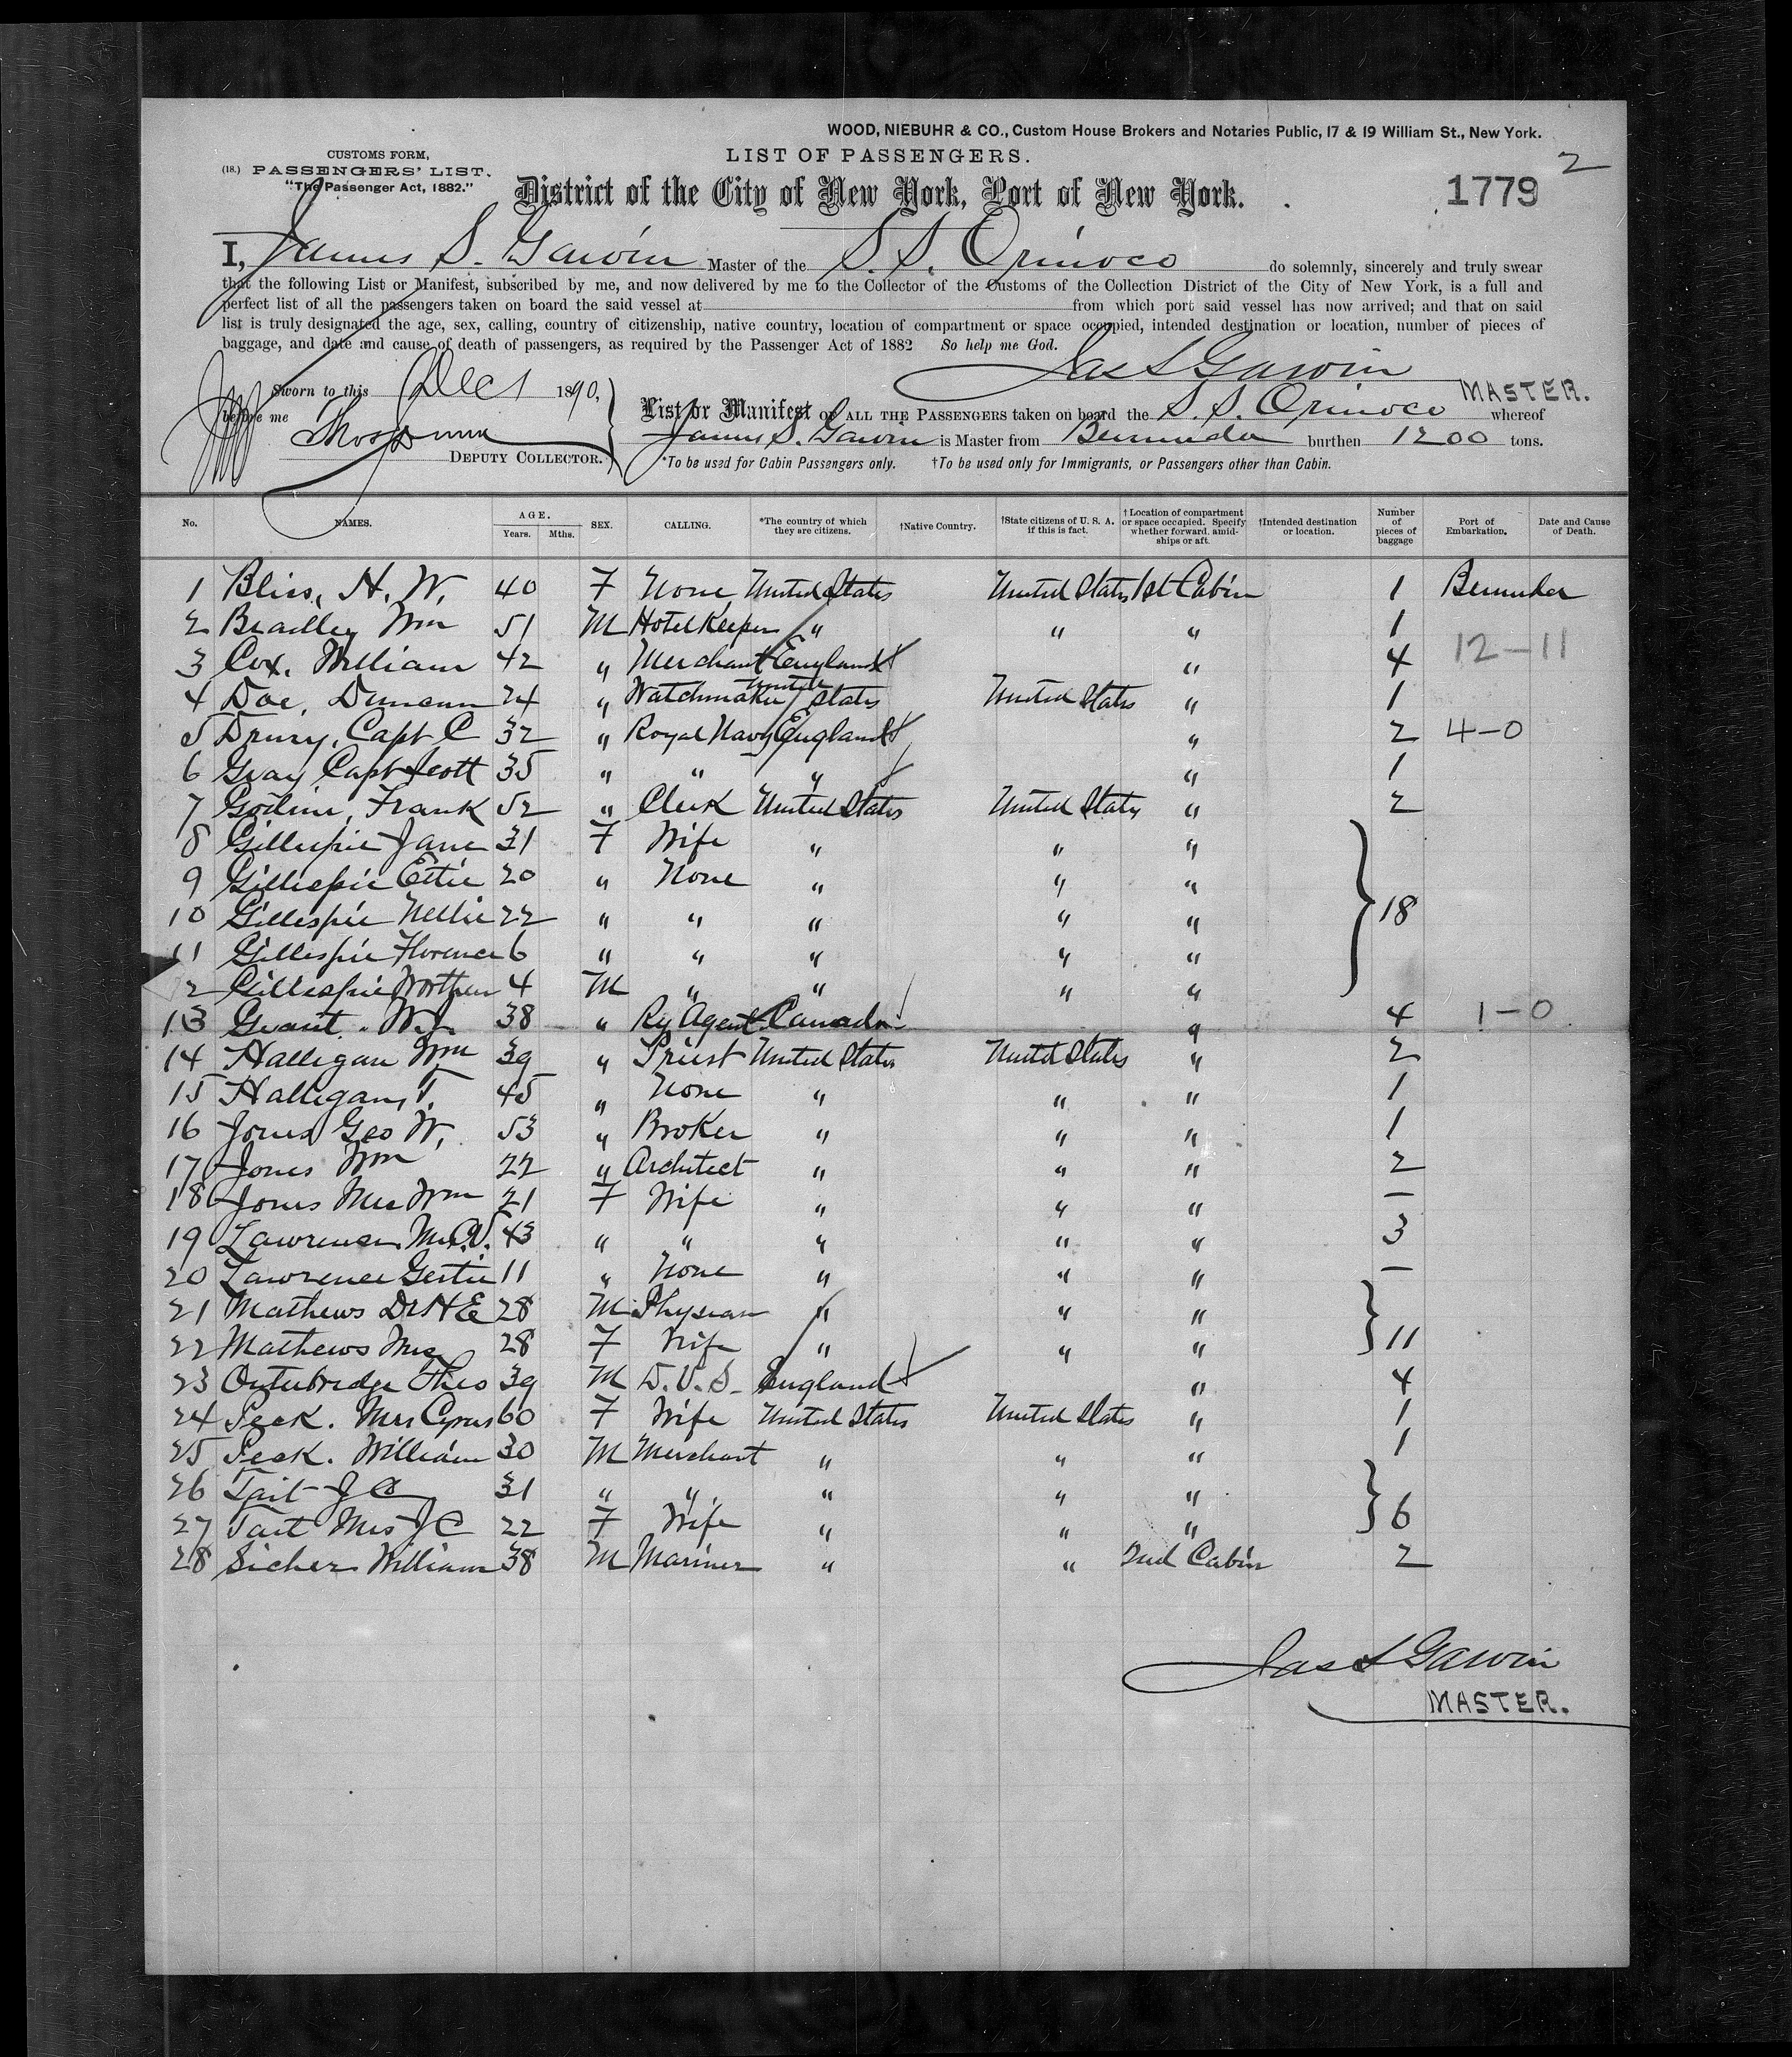 WOOD, NIEBUHR & CO., Custom House Brokers and Notaries Public, 17 & 19 William St., New York.
CUSTOMS FORM,
(18.) PASSENGERS' LIST.
"The Passenger Act, 1882."
LIST OF PASSENGERS.
2
District of the City of New York, Port of New York.
1779
I, James S. Garvin Master of the S.S. Orinoco do solemnly, sincerely and truly swear
that the following List or Manifest, subscribed by me, and now delivered by me to the Collector of the Customs of the Collection District of the City of New York, is a full and
perfect list of all the passengers taken on board the said vessel at from which port said vessel has now arrived; and that on said
list is truly designated the age, sex, calling, country of citizenship, native country, location of compartment or space occupied, intended destination or location, number of pieces of
baggage, and date and cause of death of passengers, as required by the Passenger Act of 1882 So help me God.
Jas S Garvin
MASTER.
Sworn to this Dec 1 1890,
before me
DEPUTY COLLECTOR.
List or Manifest OF ALL THE PASSENGERS taken on board the S.S. Orinoco whereof
James S. Garvin is Master from Bermuda burthen 1200 tons.
*To be used for Cabin Passengers only. †To be used only for Immigrants, or Passengers other than Cabin.
No. NAMES. AGE. Years. Mths. SEX. CALLING. *The country of which they are citizens. †Native Country. †State citizens of U. S. A. if this is fact. †Location of compartment or space occupied. Specify whether forward, amidships or aft. †Intended destination or location. Number of pieces of baggage Port of Embarkation. Date and Cause of Death.
1 Bliss, H. W. 40 F None United States United States 1st Cabin 1 Bermuda
2 Bradley Wm 51 M Hotel Keeper " " " 1
3 Cox, William 42 " Merchant England " 4 12-11
4 Doe, Duncan 24 " Watchmaker United States United States " 1
5 Drury, Capt C 32 " Royal Navy England " 2 4-0
6 Gray Capt Scott 35 " " " " 1
7 Frank 52 " Clerk United States United States " 2
8 Gillespie Jane 31 F Wife " " "
9 Gillespie Ettie 20 " None " " "
10 Gillespie Nellie 22 " " " " " 18
11 Gillespie Florence 6 " " " " "
12 Gillespie 4 M " " " "
13 Grant. W.J. 38 " Ry Agent Canada " 4 1-0
14 Halligan Wm 39 " Priest United States United States " 2
15 Halligan, T. 45 " None " " " 1
16 Jones Geo W. 53 " Broker " " " 1
17 Jones Wm 22 " Architect " " " 2
18 Jones Mrs Wm 21 F Wife " " " —
19 Lawrence, 43 " " " " " 3
20 Lawrence Gertie 11 " None " " " —
21 Mathews Dr H E 28 M Physcian " " "
22 Mathews Mrs 28 F Wife " " " 11
23 Outerbridge Theo 39 M D.V.S. England " 4
24 Peck. Mrs Cyrus 60 F Wife United States United States " 1
25 Peck. William 30 M Merchant " " " 1
26 Tait J C 31 " " " " "
27 Tait Mrs J C 22 F Wife " " " 6
28 Sicher William 38 M Mariner " " 2nd Cabin 2
Jas S Garvin
MASTER.